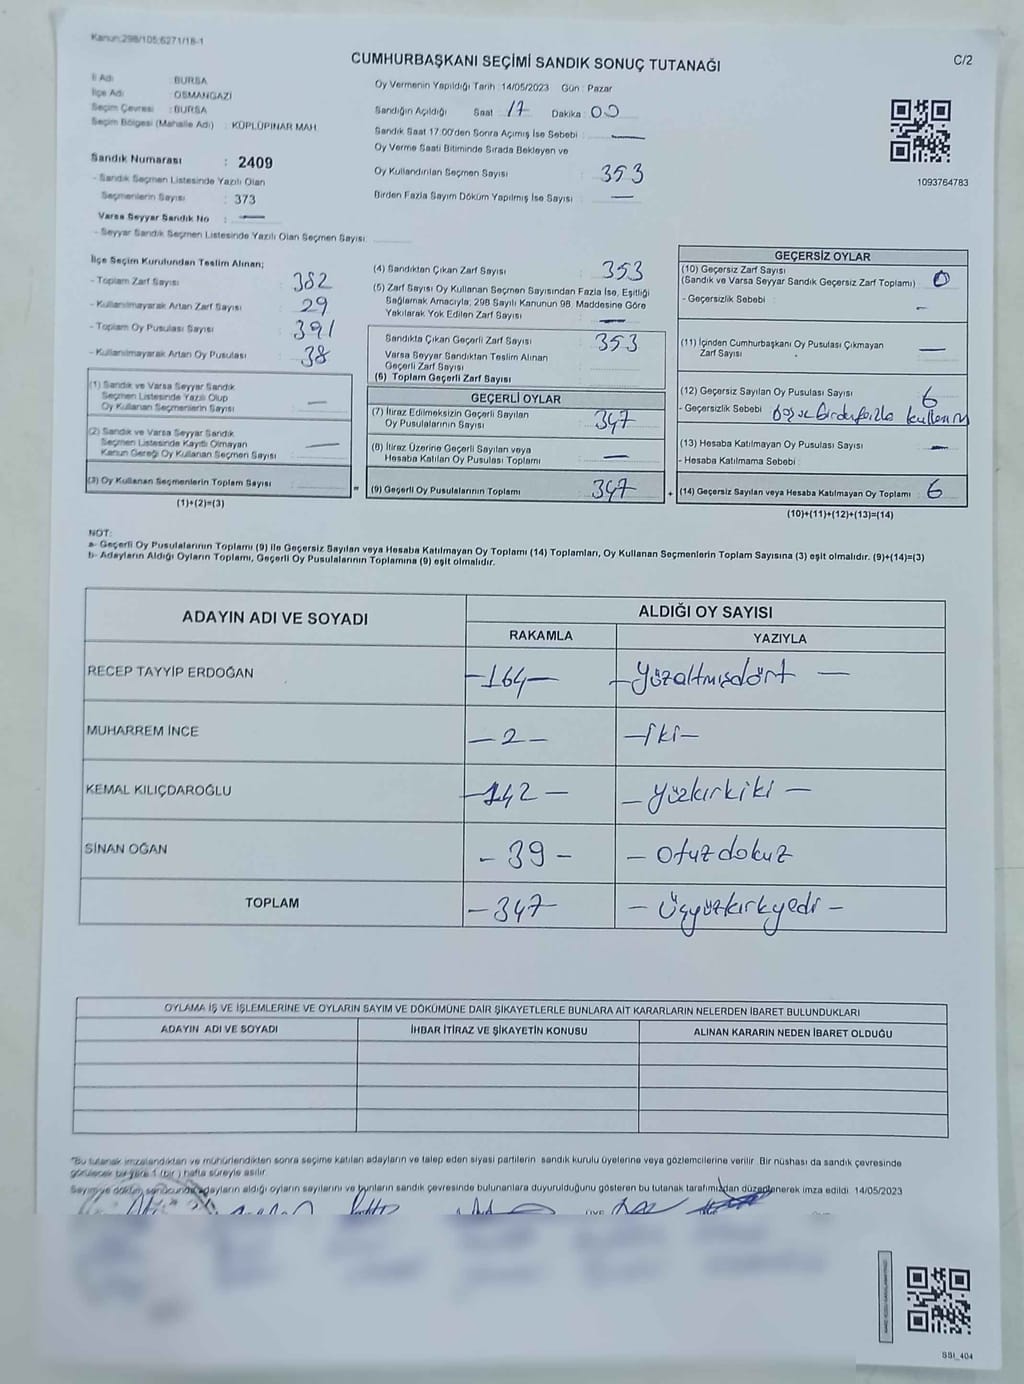 Kanun;298/105;6271/18-1
CUMHURBAŞKANI SEÇİMİ SANDIK SONUÇ TUTANAĞI
C/2
İl Adı : BURSA
İlçe Adı : OSMANGAZİ
Seçim Çevresi : BURSA
Seçim Bölgesi (Mahalle Adı) : KÜPLÜPINAR MAH.
Sandık Numarası : 2409
- Sandık Seçmen Listesinde Yazılı Olan
Seçmenlerin Sayısı : 373
Varsa Seyyar Sandık No : —
- Seyyar Sandık Seçmen Listesinde Yazılı Olan Seçmen Sayısı:
Oy Vermenin Yapıldığı Tarih :14/05/2023 Gün : Pazar
Sandığın Açıldığı Saat : 17 Dakika : 00
Sandık Saat 17:00'den Sonra Açımış İse Sebebi : —
Oy Verme Saati Bitiminde Sırada Bekleyen ve
Oy Kullandırılan Seçmen Sayısı : 353
Birden Fazla Sayım Döküm Yapılmış İse Sayısı : —
1093764783
İlçe Seçim Kurulundan Teslim Alınan;
- Toplam Zarf Sayısı : 382
- Kullanılmayarak Artan Zarf Sayısı : 29
- Toplam Oy Pusulası Sayısı : 391
- Kullanılmayarak Artan Oy Pusulası : 38
(1) Sandık ve Varsa Seyyar Sandık
Seçmen Listesinde Yazılı Olup
Oy Kullanan Seçmenlerin Sayısı : —
(2) Sandık ve Varsa Seyyar Sandık
Seçmen Listesinde Kayıtlı Olmayan
Kanun Gereği Oy Kullanan Seçmen Sayısı : —
(3) Oy Kullanan Seçmenlerin Toplam Sayısı :
(1)+(2)=(3)
(4) Sandıktan Çıkan Zarf Sayısı : 353
(5) Zarf Sayısı Oy Kullanan Seçmen Sayısından Fazla İse, Eşitliği
Sağlamak Amacıyla; 298 Sayılı Kanunun 98. Maddesine Göre
Yakılarak Yok Edilen Zarf Sayısı : —
Sandıkta Çıkan Geçerli Zarf Sayısı : 353
Varsa Seyyar Sandıktan Teslim Alınan
Geçerli Zarf Sayısı :
(6) Toplam Geçerli Zarf Sayısı :
GEÇERLİ OYLAR
(7) İtiraz Edilmeksizin Geçerli Sayılan
Oy Pusulalarının Sayısı : 347
(8) İtiraz Üzerine Geçerli Sayılan veya
Hesaba Katılan Oy Pusulası Toplamı : —
= (9) Geçerli Oy Pusulalarının Toplamı : 347
GEÇERSİZ OYLAR
(10) Geçersiz Zarf Sayısı
(Sandık ve Varsa Seyyar Sandık Geçersiz Zarf Toplamı) : 0
- Geçersizlik Sebebi : —
(11) İçinden Cumhurbaşkanı Oy Pusulası Çıkmayan
Zarf Sayısı : —
(12) Geçersiz Sayılan Oy Pusulası Sayısı : 6
- Geçersizlik Sebebi : boş ve birden fazla kullanım
(13) Hesaba Katılmayan Oy Pusulası Sayısı : —
- Hesaba Katılmama Sebebi :
+ (14) Geçersiz Sayılan veya Hesaba Katılmayan Oy Toplamı : 6
(10)+(11)+(12)+(13)=(14)
NOT:
a- Geçerli Oy Pusulalarının Toplamı (9) ile Geçersiz Sayılan veya Hesaba Katılmayan Oy Toplamı (14) Toplamları, Oy Kullanan Seçmenlerin Toplam Sayısına (3) eşit olmalıdır. (9)+(14)=(3)
b- Adayların Aldığı Oyların Toplamı, Geçerli Oy Pusulalarının Toplamına (9) eşit olmalıdır.
ADAYIN ADI VE SOYADI
ALDIĞI OY SAYISI
RAKAMLA YAZIYLA
RECEP TAYYİP ERDOĞAN —164— —Yüzaltmışdört —
MUHARREM İNCE —2— —İki—
KEMAL KILIÇDAROĞLU —142— —Yüzkırkiki—
SİNAN OĞAN -39- —Otuzdokuz
TOPLAM —347 —Üçyüzkırkyedi—
OYLAMA İŞ VE İŞLEMLERİNE VE OYLARIN SAYIM VE DÖKÜMÜNE DAİR ŞİKAYETLERLE BUNLARA AİT KARARLARIN NELERDEN İBARET BULUNDUKLARI
ADAYIN ADI VE SOYADI İHBAR İTİRAZ VE ŞİKAYETİN KONUSU ALINAN KARARIN NEDEN İBARET OLDUĞU
*Bu tutanak imzalandıktan ve mühürlendikten sonra seçime katılan adayların ve talep eden siyasi partilerin sandık kurulu üyelerine veya gözlemcilerine verilir. Bir nüshası da sandık çevresinde
görülecek bir yere 1 (bir ) hafta süreyle asılır.
Sayım ve döküm sonucunda adayların aldığı oyların sayılarını ve bunların sandık çevresinde bulunanlara duyurulduğunu gösteren bu tutanak tarafımızdan düzenlenerek imza edildi. 14/05/2023
SSI_404